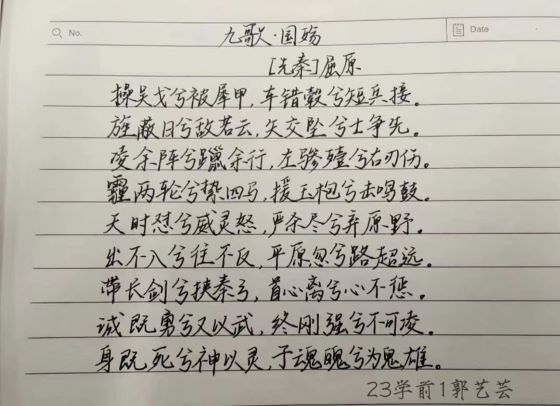 No.
Date
九歌·国殇
[先秦]屈原
操吴戈兮被犀甲,车错毂兮短兵接。
旌蔽日兮敌若云,矢交坠兮士争先。
凌余阵兮躐余行,左骖殪兮右刃伤。
霾两轮兮絷四马,援玉枹兮击鸣鼓。
天时怼兮威灵怒,严杀尽兮弃原野。
出不入兮往不反,平原忽兮路超远。
带长剑兮挟秦弓,首心离兮心不惩。
诚既勇兮又以武,终刚强兮不可凌。
身既死兮神以灵,子魂魄兮为鬼雄。
23学前1郭艺芸